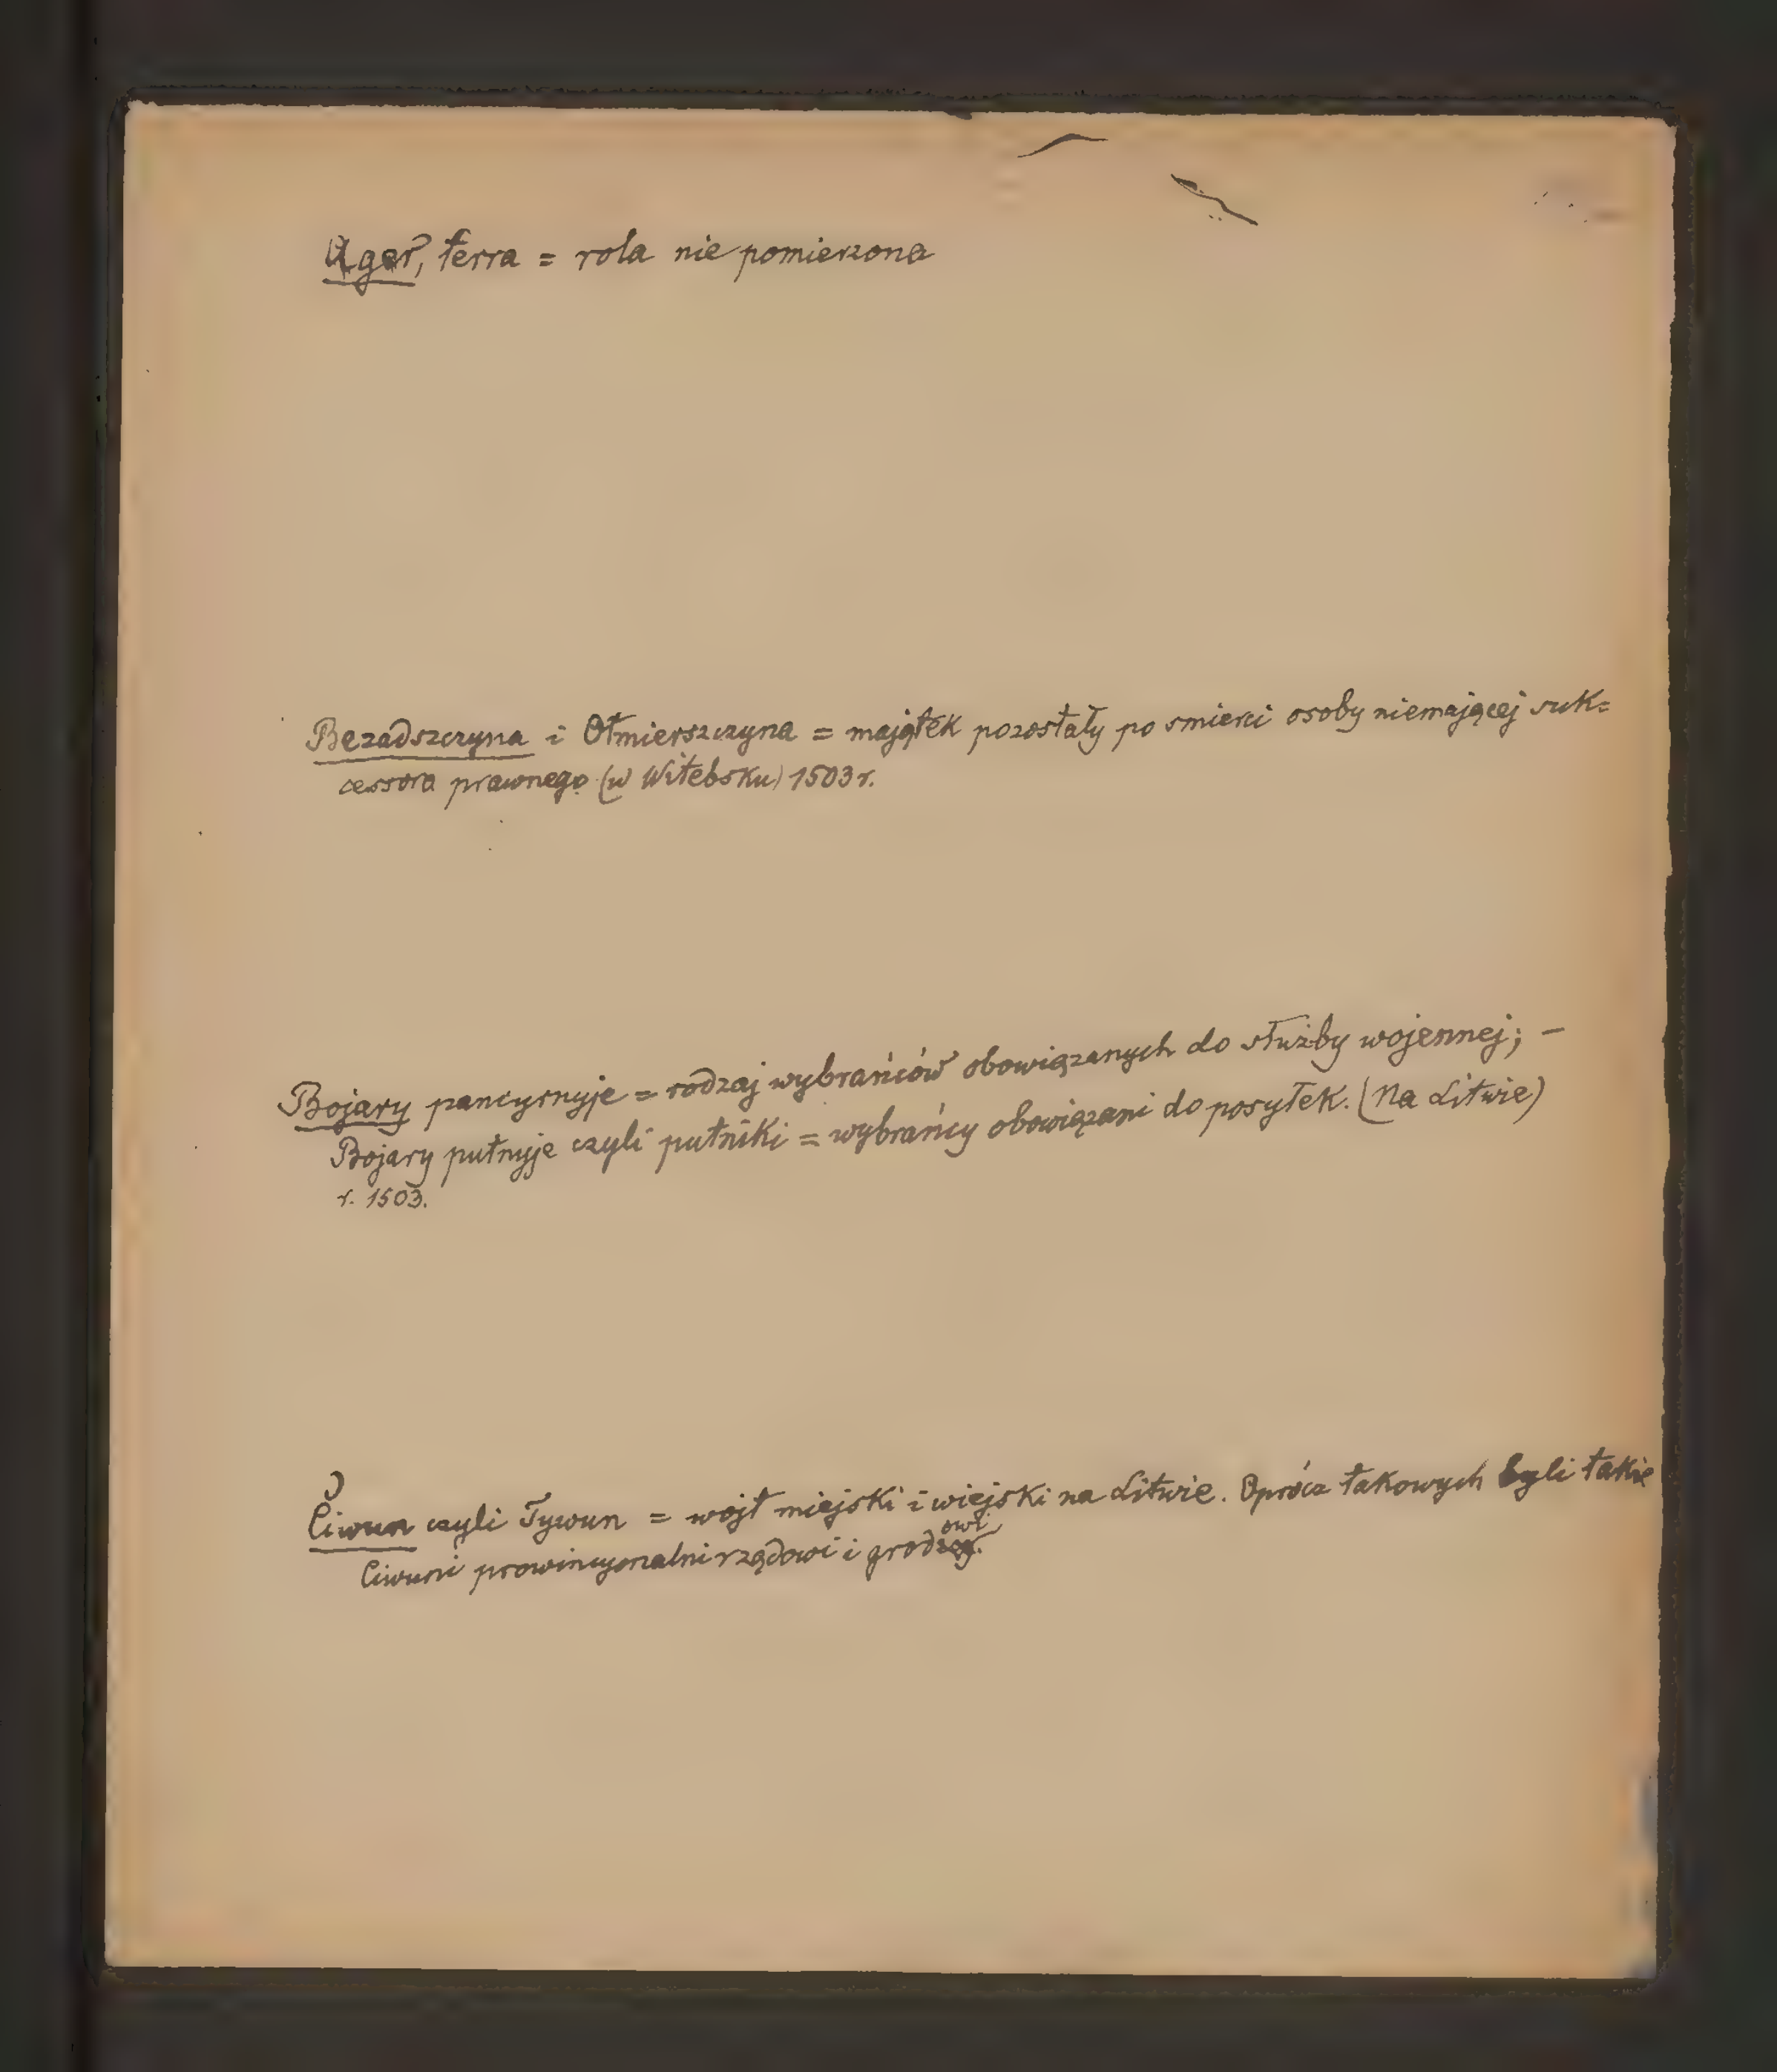 Ager, terra = rola nie pomierzona
Bezadszczyna i Otmierszczyna = majątek pozostały po smierci osoby niemającej suk=
cessora prawnego (w Witebsku) 1503 r.
Bojary pancyrnyje = rodzaj wybrańców obowiązanych do służby wojennej; —
Bojary putnyje czyli putniki = wybrańcy obowiązani do posyłek. (Na Litwie)
r. 1503.
Ciwun czyli Tywun = wojt miejski i wiejski na Litwie. Oprócz takowych byli takie
Ciwuni prowincyonalni rządowi i grodowi.